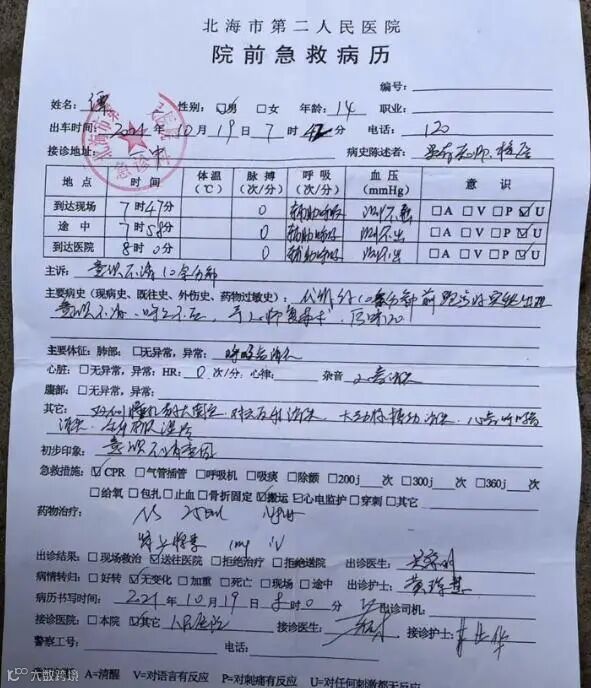 北海市第二人民医院
院前急救病历
编号:
姓名: 谭 性别: ☑男 □女 年龄: 14 职业:
出车时间: 2021年10月19日7时42分 电话: 120
接诊地址: 一中 病史陈述者:
地点 时间 体温(℃) 脉搏(次/分) 呼吸(次/分) 血压(mmHg) 意识
到达现场 7时47分 0 辅助呼吸 测不出 □A □V □P ☑U
途中 7时58分 0 辅助呼吸 测不出 □A □V □P ☑U
到达医院 8时0分 0 辅助呼吸 测不出 □A □V □P ☑U
主诉: 意识不清10余分钟
主要病史(现病史、既往史、外伤史、药物过敏史): 代诉约10余分钟前跑步时突然出现
意识不清、呼之不应
主要体征: 肺部: □无异常, 异常: 呼吸音消失
心脏: □无异常, 异常: HR: 0次/分, 心律: 杂音 心音消失
腹部: □无异常, 异常:
其它: 双侧瞳孔散大固定, 对光反射消失, 大动脉搏动消失,
消失, 全身皮肤湿冷
初步印象: 意识不清查因
急救措施: ☑CPR □气管插管 □呼吸机 □吸痰 □除颤 □200j 次 □300j 次 □360j 次
□给氧 □包扎 □止血 □骨折固定 ☑搬运 ☑心电监护 □穿刺 □其它
药物治疗: NS 250ml
肾上腺素 1mg iv
出诊结果: □现场救治 ☑送往医院 □拒绝治疗 □拒绝送院 出诊医生:
病情转归: □好转 ☑无变化 □加重 □死亡 □现场 □途中 出诊护士:
病历书写时间: 2021年10月19日8时0分 出诊司机:
接诊医院: □本院 ☑其它 人民医院 接诊医生: 接诊护士:
警察工号: 电话:
A=清醒 V=对语言有反应 P=对刺痛有反应 U=对任何刺激都无反应
北海市第二人民医院
急诊科
大数跨境